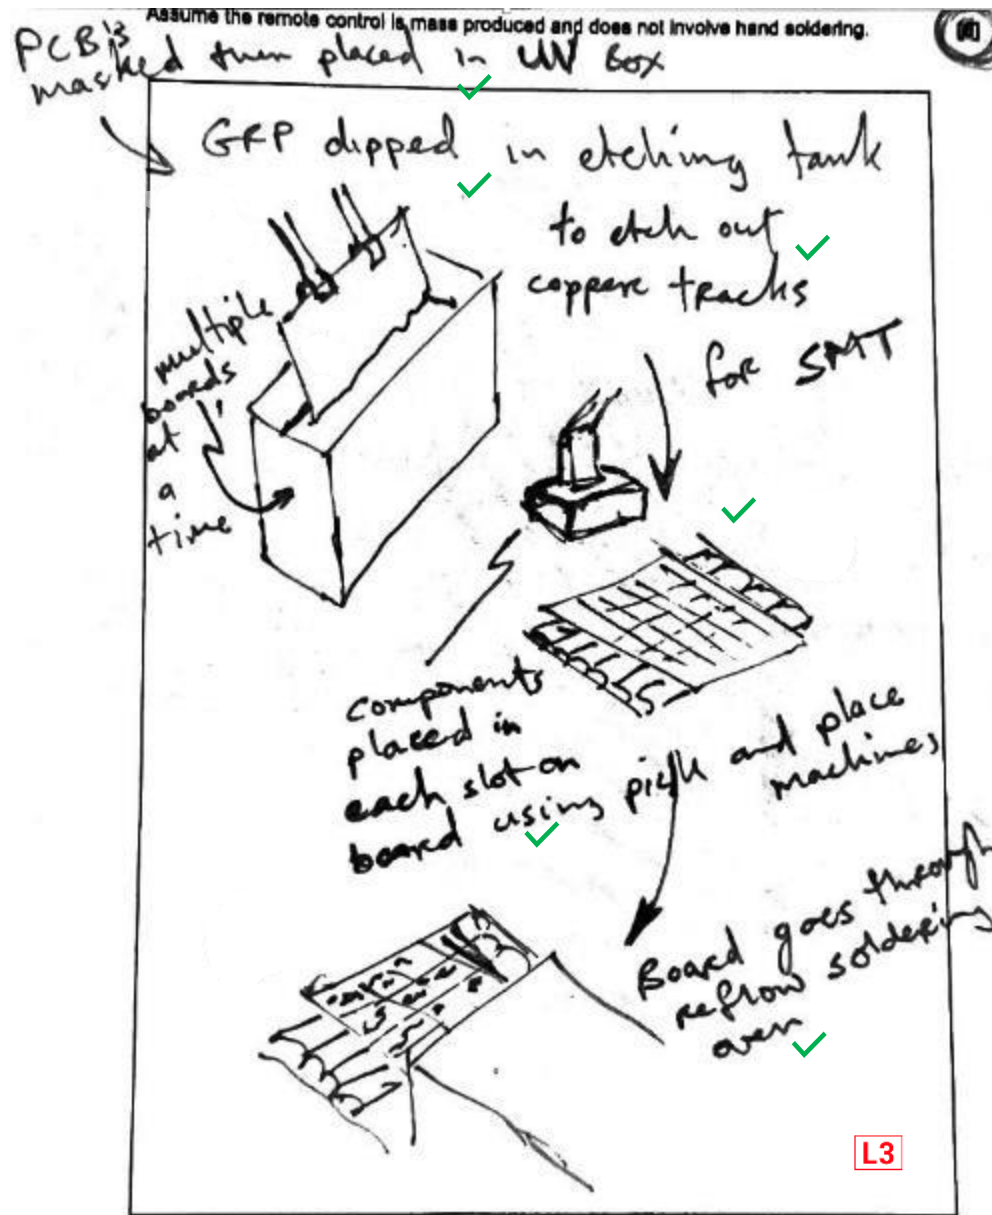 Assume the remote control is mass produced and does not involve hand soldering.
PCB's
masked then placed in UV Box
GRP dipped in etching tank
to etch out
copper tracks
for SMT
multiple
boards
at
a
time
components
placed in
each slot on
board using pick and place
machines
Board goes through
reflow soldering
oven
L3